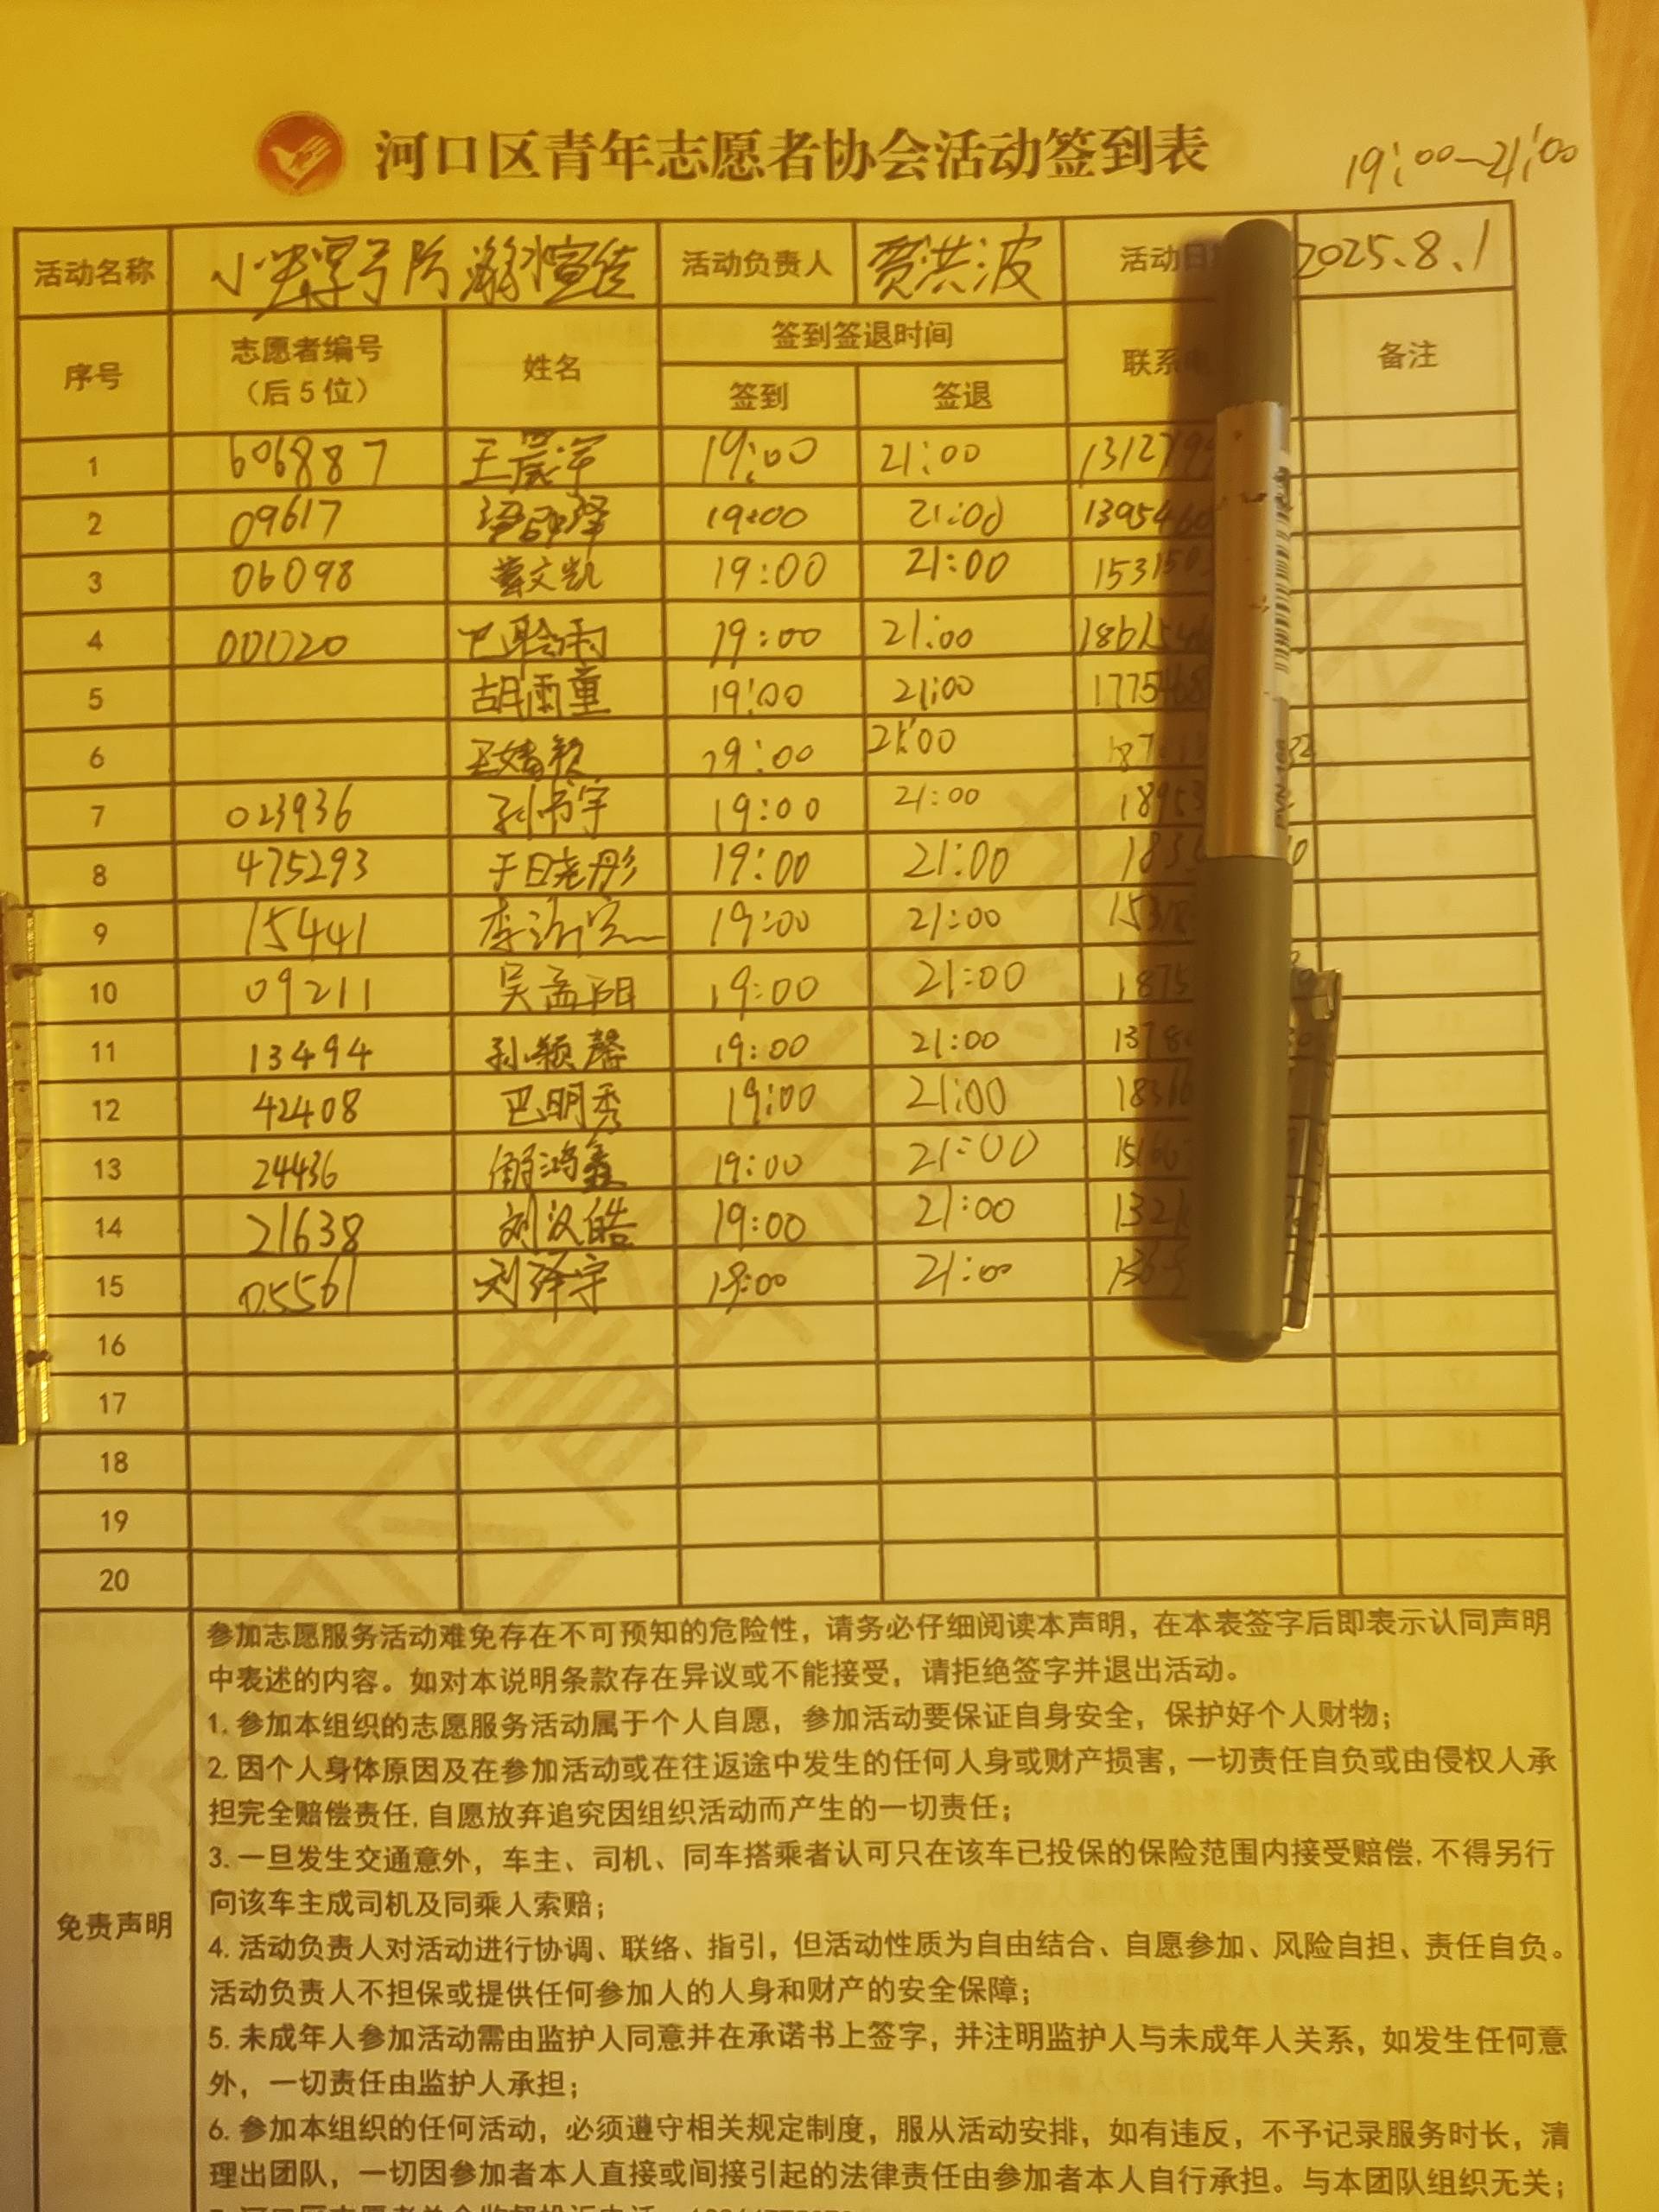 河口区青年志愿者协会活动签到表
19:00~21:00
活动名称 小 号防溺水宣传 活动负责人 贾洪波 活动日 2025.8.1
序号 志愿者编号（后5位） 姓名 签到签退时间 联系 备注
签到 签退
1 606887 王晨宇 19:00 21:00 131279
2 09617 19:00 21:00 1395460
3 06098 曹文凯 19:00 21:00 153150
4 001020 巴聆雨 19:00 21:00 186154
5 胡雨童 19:00 21:00 1775468
6 19:00 21:00 187 32
7 023936 孙书宇 19:00 21:00 18953
8 475293 于日尧彤 19:00 21:00 183 0
9 15441 李 19:00 21:00 15318
10 09211 吴孟阳 19:00 21:00 1875
11 13494 孙颖馨 19:00 21:00 1378
12 42408 巴明秀 19:00 21:00 18366
13 24436 鸿鑫 19:00 21:00 1516
14 21638 刘汉皓 19:00 21:00 1321
15 05561 刘泽宇 19:00 21:00 1365
16
17
18
19
20
免责声明
参加志愿服务活动难免存在不可预知的危险性，请务必仔细阅读本声明，在本表签字后即表示认同声明
中表述的内容。如对本说明条款存在异议或不能接受，请拒绝签字并退出活动。
1. 参加本组织的志愿服务活动属于个人自愿，参加活动要保证自身安全，保护好个人财物；
2. 因个人身体原因及在参加活动或在往返途中发生的任何人身或财产损害，一切责任自负或由侵权人承
担完全赔偿责任, 自愿放弃追究因组织活动而产生的一切责任；
3. 一旦发生交通意外，车主、司机、同车搭乘者认可只在该车已投保的保险范围内接受赔偿, 不得另行
向该车主成司机及同乘人索赔；
4. 活动负责人对活动进行协调、联络、指引，但活动性质为自由结合、自愿参加、风险自担、责任自负。
活动负责人不担保或提供任何参加人的人身和财产的安全保障；
5. 未成年人参加活动需由监护人同意并在承诺书上签字，并注明监护人与未成年人关系，如发生任何意
外，一切责任由监护人承担；
6. 参加本组织的任何活动，必须遵守相关规定制度，服从活动安排，如有违反，不予记录服务时长，清
理出团队，一切因参加者本人直接或间接引起的法律责任由参加者本人自行承担。与本团队组织无关；